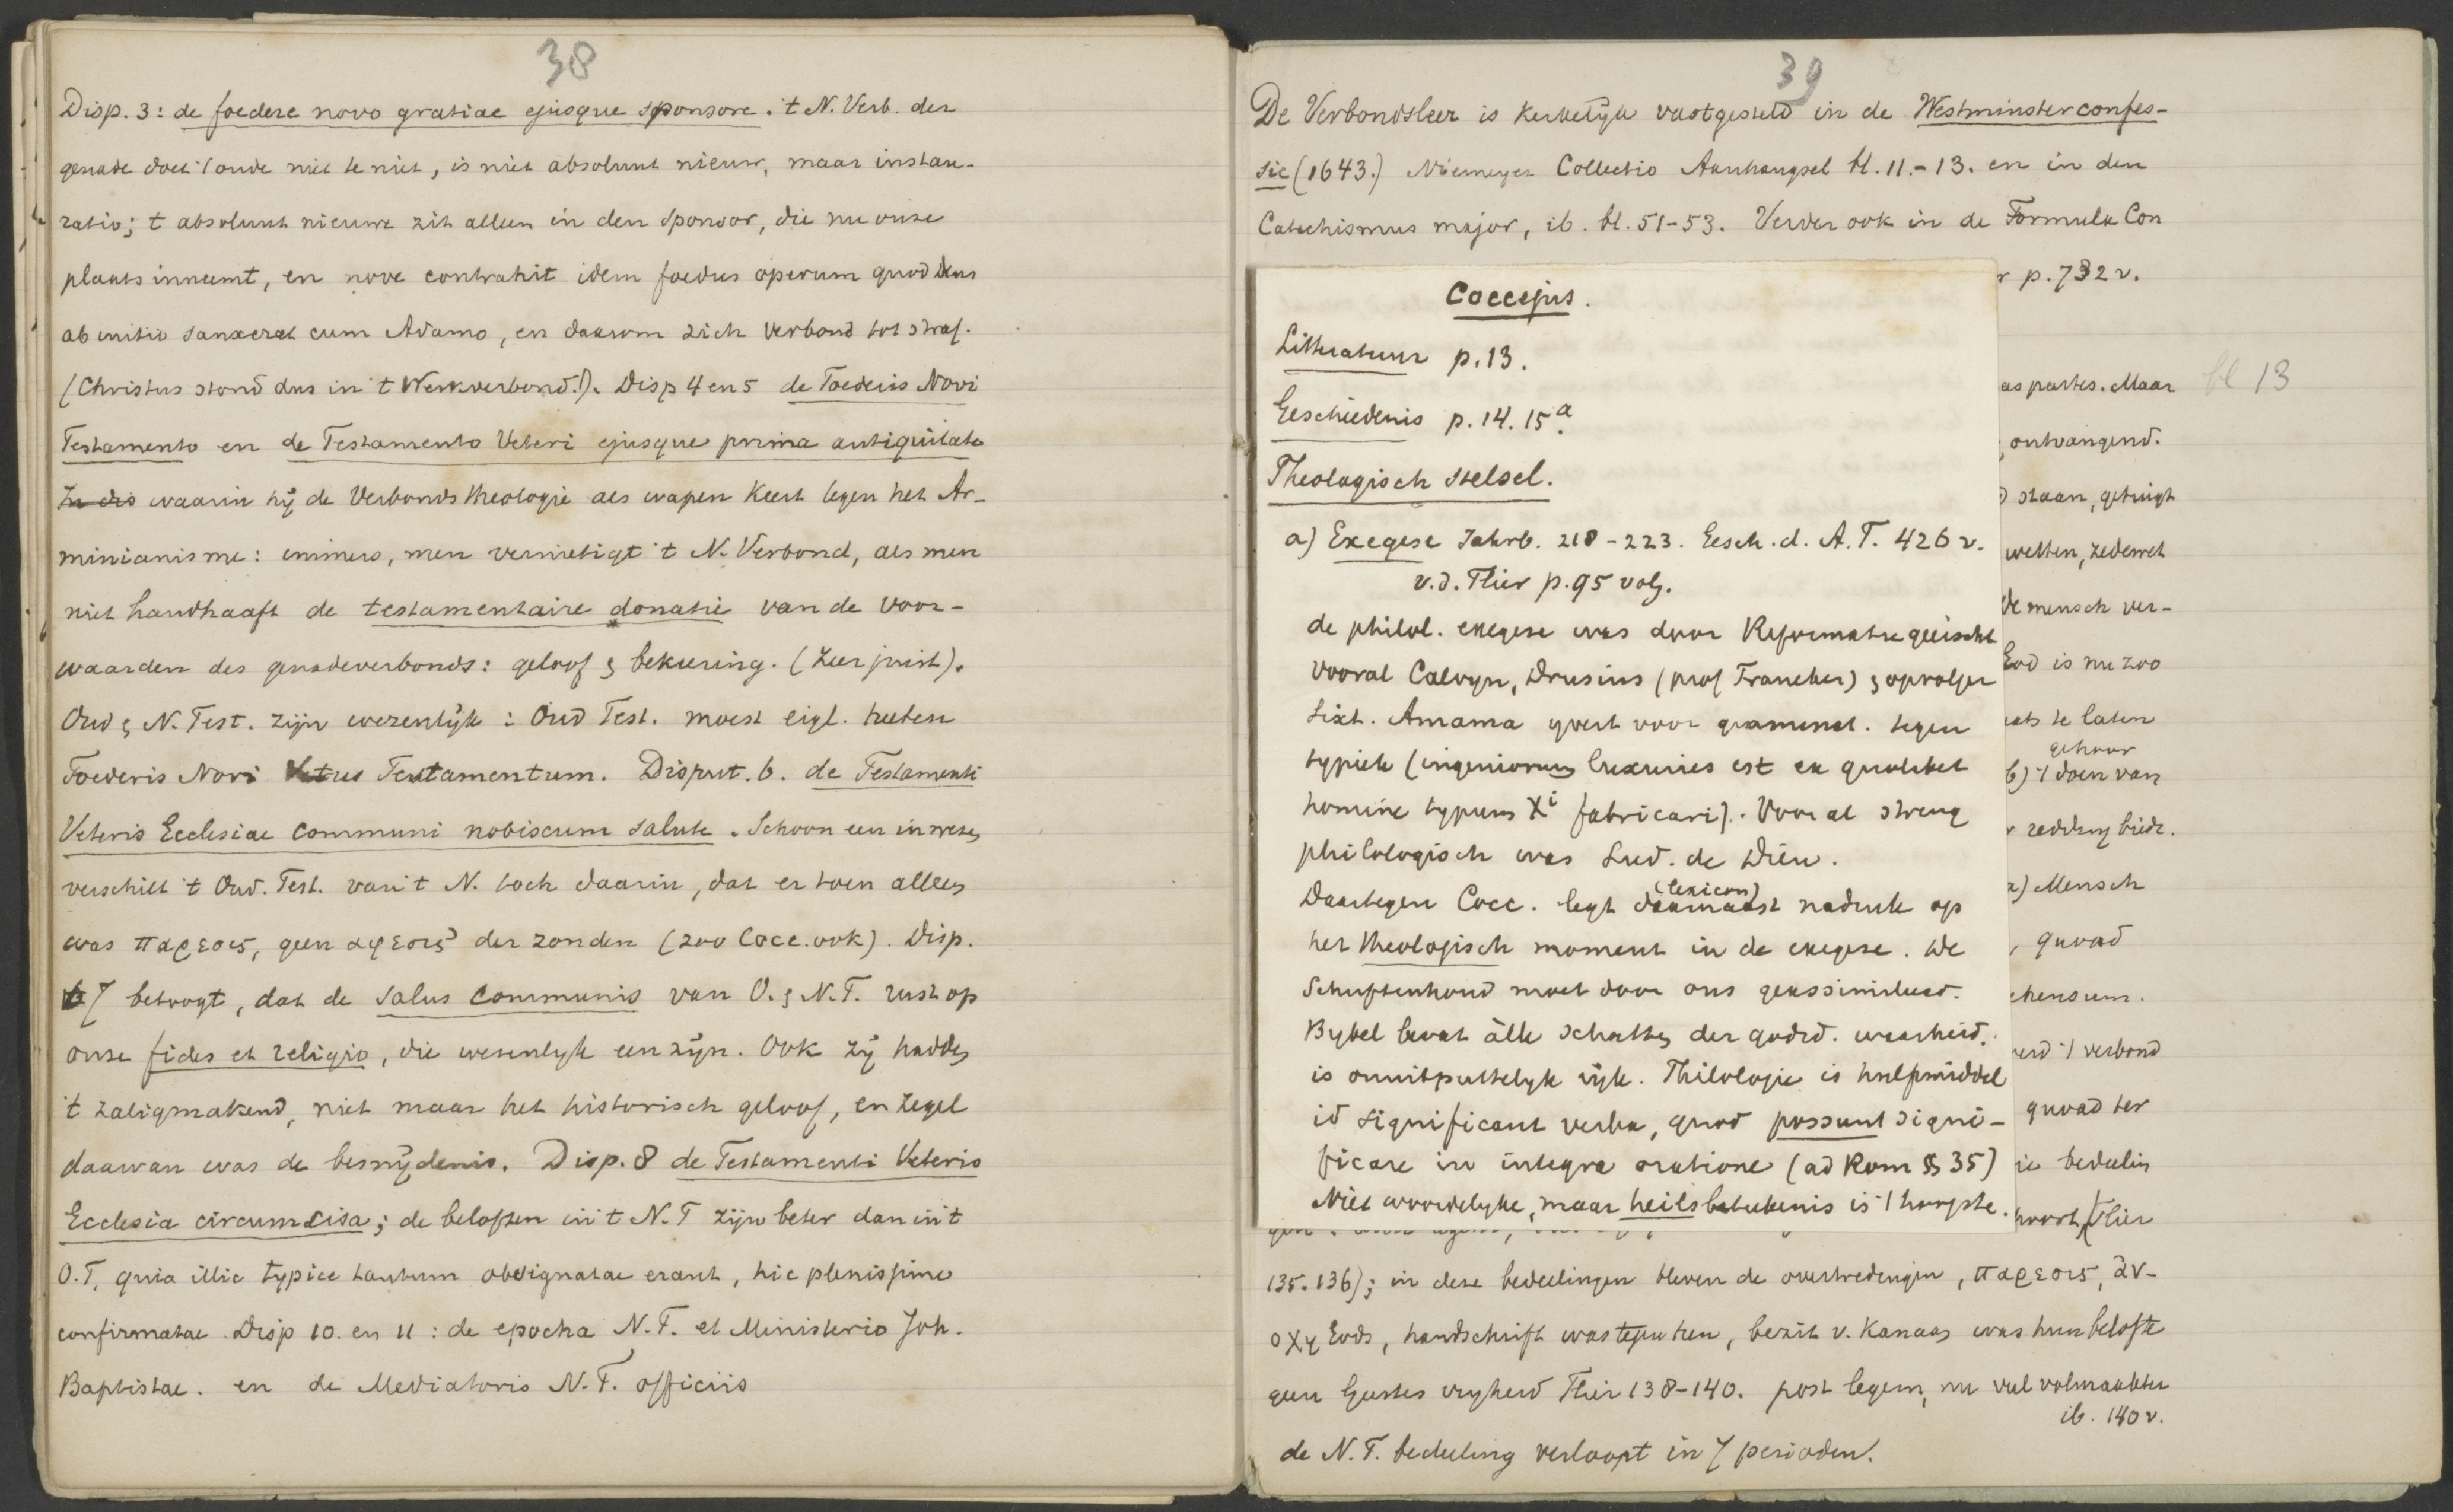 38
Disp. 3: de foedere novo gratiae ejusque sponsore. 't N. Verb. der
genade doet 't oude niet te niet, is niet absoluut nieuw, maar instau-
ratio; 't absoluut nieuwe zit alleen in den sponsor, die nu onze
plaats inneemt, en nove contrahit idem foedus operum quod Deus
ab initio sanxerat cum Adamo, en daarom zich verbond tot straf.
(Christus stond dus in 't Werkverbond!). Disp 4 en 5 de Foederis Novi
Testamento en de Testamento Veteri ejusque prima antiquitate
In dis waarin hij de Verbondstheologie als wapen keert tegen het Ar-
minianisme: immers, men vernietigt 't N. Verbond, als men
niet handhaaft de testamentaire donatie van de voor-
waarden des genadeverbonds: geloof & bekeering. (Zeer juist).
Oud & N. Test. zijn wezenlijk: Oud Test. moest eigl. heeten
Foederis Novi Vetus Testamentum. Disput. 6. de Testamenti
Veteris Ecclesiae communi nobiscum salute. Schoon een in wezen
verschilt 't Oud. Test. van 't N. toch daarin, dat er toen alleen
was παρεσις, geen αφεσις der zonden (zoo Cocc. ook). Disp.
7 betoogt, dat de salus communis van O. & N.T. rust op
onze fides et religio, die wesenlyk een zijn. Ook zij hadden
't zaligmakend, niet maar het historisch geloof, en zegel
daarvan was de besnijdenis. Disp. 8 de Testamenti Veteris
Ecclesia circumcisa; de beloften in 't N.T zijn beter dan in 't
O.T, quia illic typice tantum obsignatae erant, hic plenissime
confirmatae Disp 10. en 11: de epocha N.T. et Ministerio Joh.
Baptistae. en de Mediatoris N.T. officiis
39
De Verbondsleer is kerkelijk vastgesteld in de Westminsterconfes-
sie (1643.) Niemeyer Collectio Aanhangsel bl. 11.-13. en in den
Catechismus major, ib. bl. 51-53. Verder ook in de Formula Con
p. 732 v.
Coccejus.
Litteratuur p. 13.
Geschiedenis p. 14. 15a.
Theologisch stelsel.
a) Exegese Jahrb. 218-223. Gesch. d. A.T. 426 v.
v.d. Flier p. 95 volg.
de philol. exegese was door Reformatie geëischt
vooral Calvyn, Drusius (prof Franeker) & opvolger
Sixt. Amama yvert voor grammat. tegen
typiek (ingeniorum luxuries est ex quolibet
homine typum Xi fabricari). Vooral streng
philologisch was Lud. de Dieu.
Daartegen Cocc. legt daarnaast (lexicon) nadruk op
het theologisch moment in de exegese. De
Schriftinhoud moet door ons geassimileerd.
Bybel bevat àlle schatten der godd. waarheid,
is onuitputtelyk rijk. Philologie is hulpmiddel
id significant verba, quod possunt signi-
ficare in integra oratione (ad Rom § 35)
Niet woordelyke, maar heilsbeteekenis is 't hoogste.
as partes. Maar
bl 13
ontvangend.
staan, getuigt
wetten, zedewet
De mensch ver-
God is nu zoo
te laten
gehoor
b) 't doen van
redding biedt.
a) Mensch
, quoad
verbond
quoad ter
bedeelin
hoort, (Flier
135. 136); in deze bedeelingen bleven de overtredingen, παρεσις, ἀν-
οχη Gods, handschrift was tegen hen, bezit v. Kanaan was hun belofte
geen Geestes vryheid Flier 138-140. post legem, nu veel volmaakter
ib. 140 v.
de N.T. bedeeling verloopt in 7 perioden.